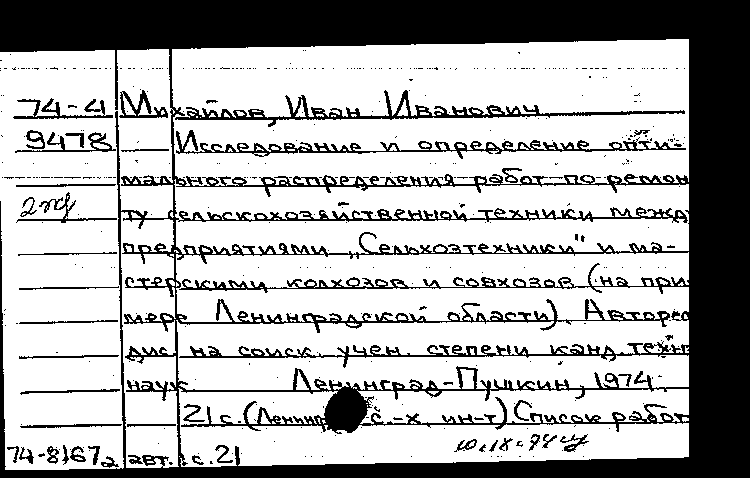 74-4 Михайлов, Иван Иванович
9478 Исследование и определение опти-
мального распределения работ по ремон
2 яд ту сельскохозяйственной техники межд
предприятиями „Сельхозтехники" и ма-
стерскими колхозов и совхозов (на при
мере Ленинградской области). Авторе
дис. на соиск. учен. степени канд. техн
наук Ленинград-Пушкин, 1974.
21 с. (Ленингр с.-х. ин-т). Список работ
74-81672 авт.: с. 21